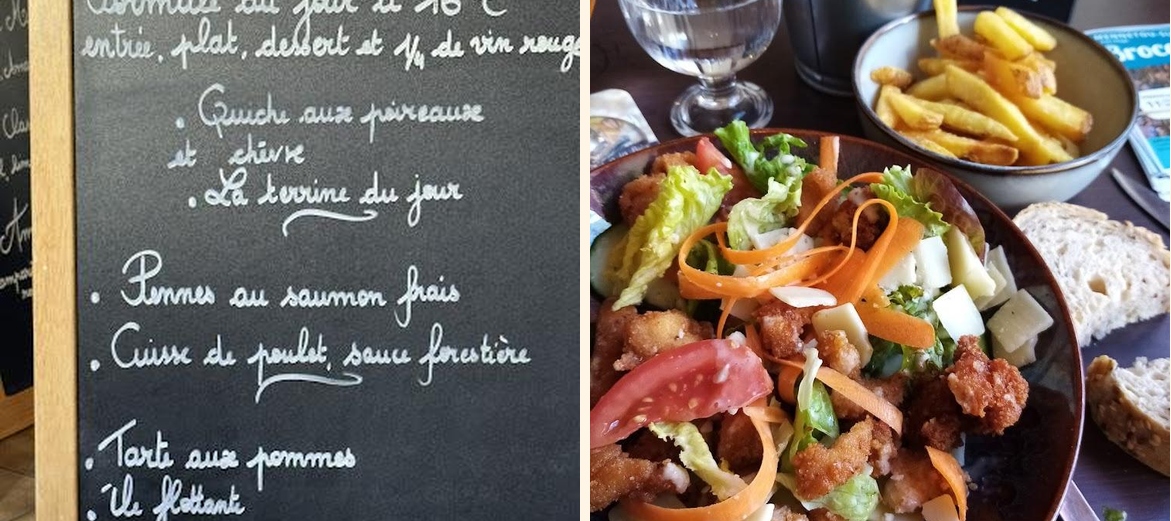 Formule du jour à 16 €
entrée, plat, dessert et 1/4 de vin rouge
. Quiche aux poireaux
et chèvre
. La terrine du jour
. Pennes au saumon frais
. Cuisse de poulet, sauce forestière
. Tarte aux pommes
. Île flottante
Broc